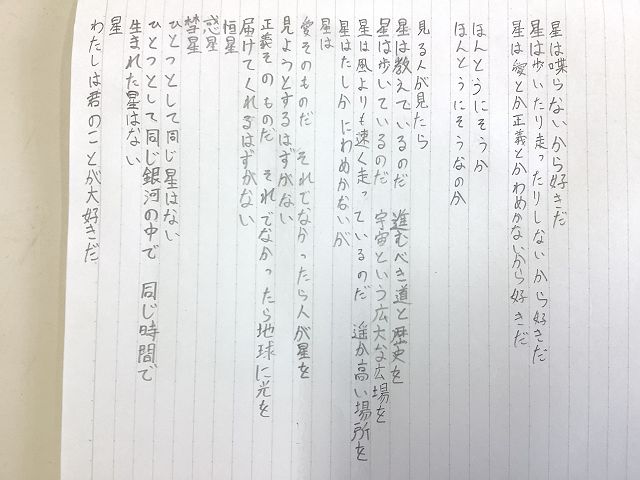 星は喋らないから好きだ
星は歩いたり走ったりしないから好きだ
星は愛とか正義とかわめかないから好きだ
ほんとうにそうか
ほんとうにそうなのか
見る人が見たら
星は教えているのだ　進むべき道と歴史を
星は歩いているのだ　宇宙という広大な広場を
星は風よりも速く走っているのだ　遥か高い場所を
星はたしかにわめかないが
星は
愛そのものだ　それでなかったら人が星を
見ようとするはずがない
正義そのものだ　それでなかったら地球に光を
届けてくれるはずがない
恒星
惑星
彗星
ひとつとして同じ星はない
ひとつとして同じ銀河の中で　同じ時間で
生まれた星はない
星
わたしは君のことが大好きだ